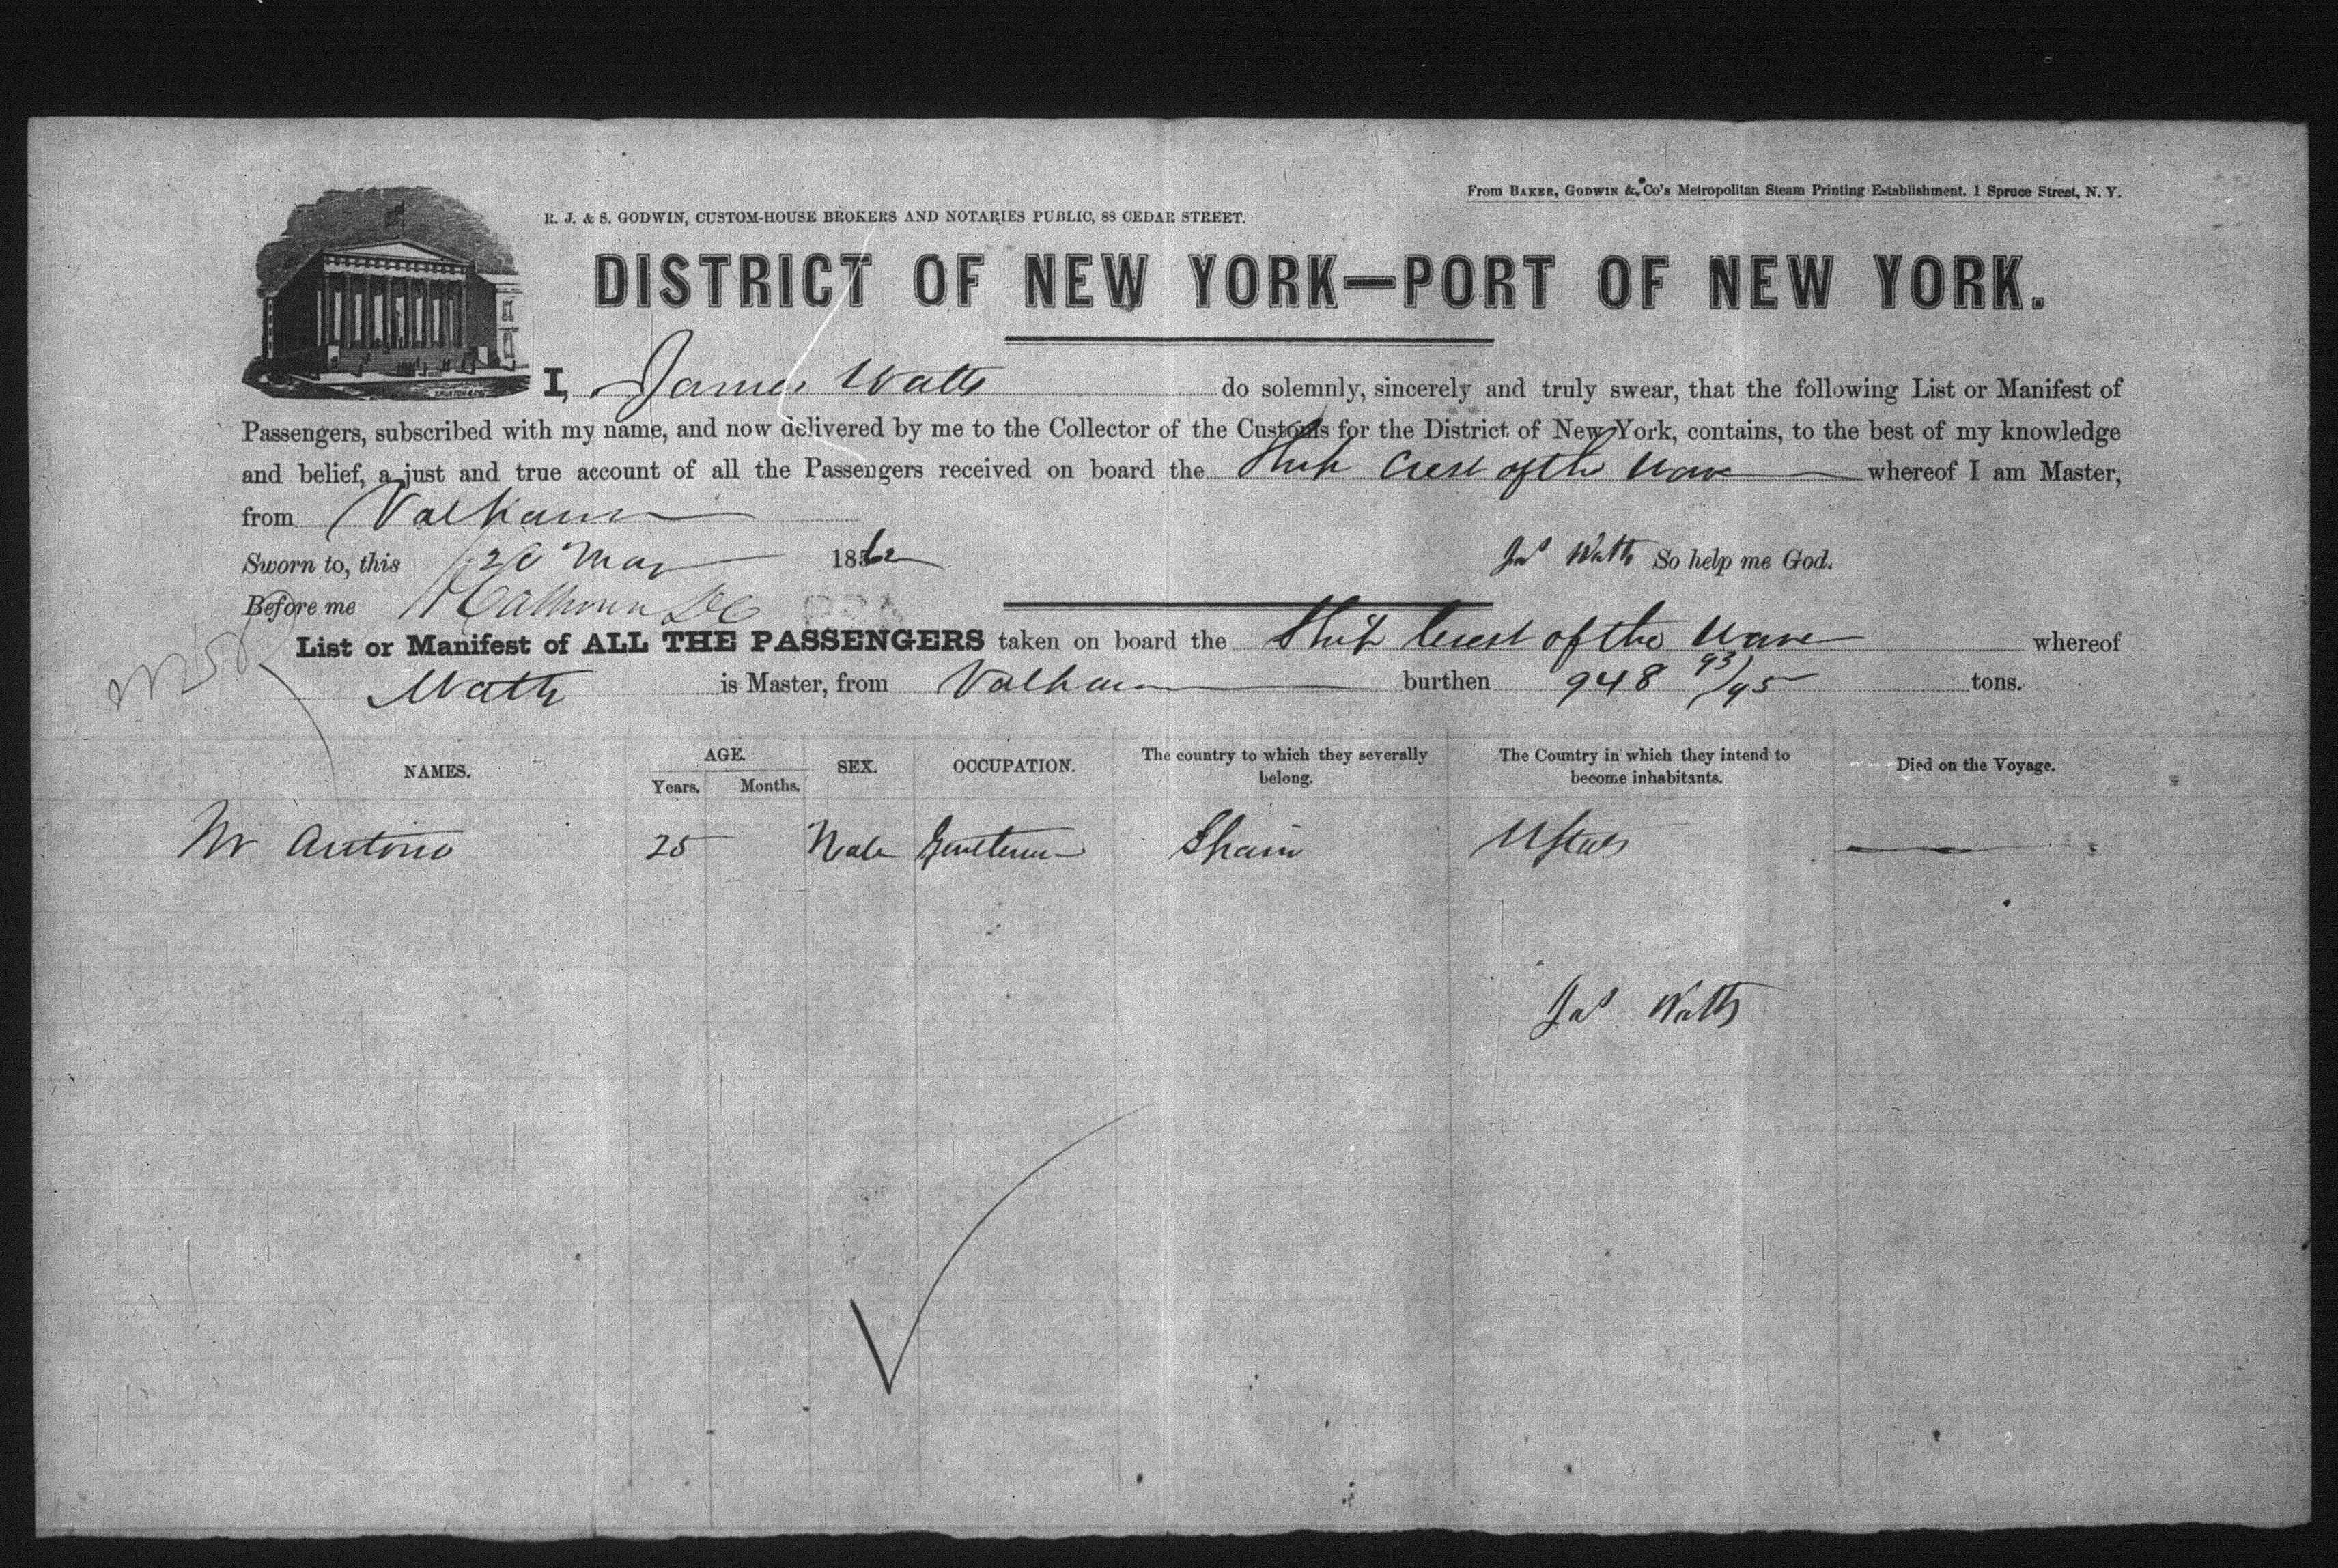 From BAKER, GODWIN & Co's Metropolitan Steam Printing Establishment. 1 Spruce Street, N. Y.
R. J. & S. GODWIN, CUSTOM-HOUSE BROKERS AND NOTARIES PUBLIC, 88 CEDAR STREET.
DISTRICT OF NEW YORK—PORT OF NEW YORK.
I, James Watts do solemnly, sincerely and truly swear, that the following List or Manifest of
Passengers, subscribed with my name, and now delivered by me to the Collector of the Customs for the District of New York, contains, to the best of my knowledge
and belief, a just and true account of all the Passengers received on board the Ship Crest of the Wave whereof I am Master,
from
Sworn to, this 20 May 1862 Jas Watts So help me God.
Before me
List or Manifest of ALL THE PASSENGERS taken on board the Ship Crest of the Wave whereof
Watts is Master, from burthen 948 93/95 tons.
NAMES. AGE. Years. Months. SEX. OCCUPATION. The country to which they severally belong. The Country in which they intend to become inhabitants. Died on the Voyage.
Mr Antonio 25 Male Gentleman Spain UStates
Jas Watts